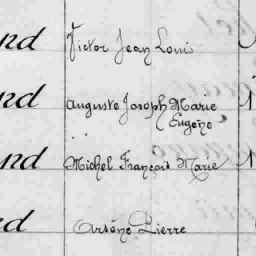 nd Victor Jean Louis
nd Auguste Joseph Marie
Eugène
nd Michel François Marie
nd Arsène Pierre